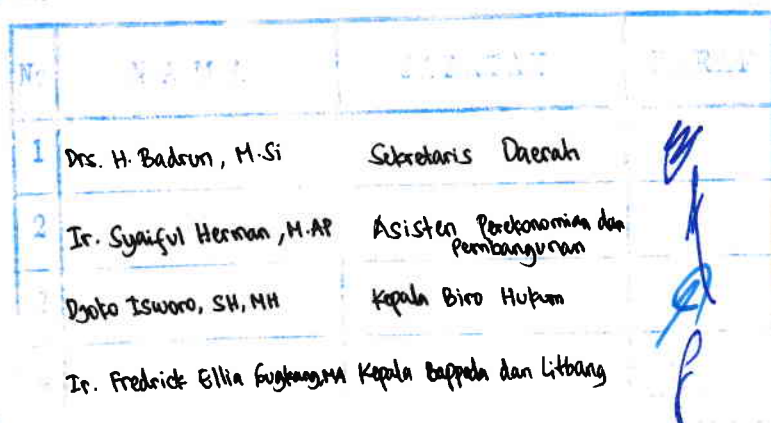 No N A M A JABATAN PARAF
1 Drs. H. Badrun, M.Si Sekretaris Daerah
2 Ir. Syaiful Herman, M.AP Asisten Perekonomian dan
Pembangunan
3 Djoko Isworo, SH, MH Kepala Biro Hukum
Ir. Fredrick Ellia MA Kepala Bappeda dan Litbang